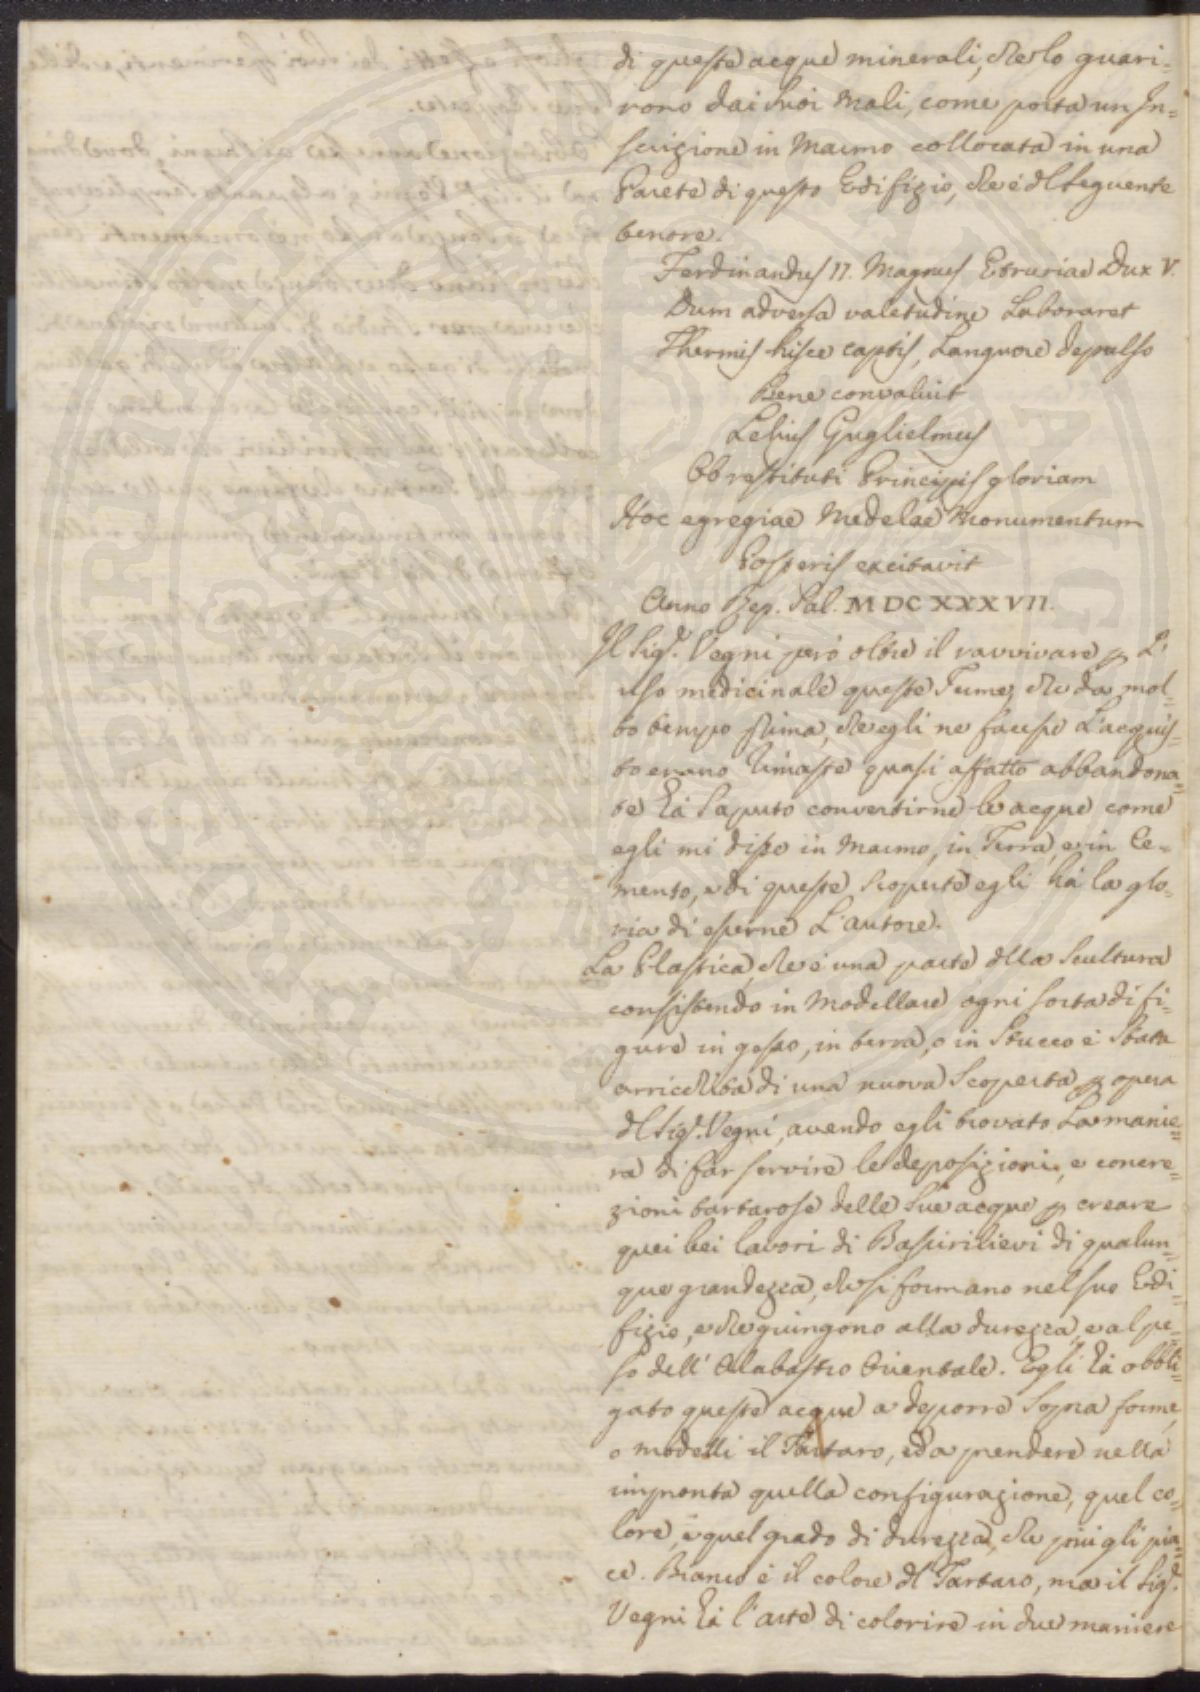 di queste acque minerali, che lo guari-
rono dai suoi mali, come porta un In=
scrizione in Marmo collocata in una
Parete di questo Edifizio, che è dl seguente
tenore.
Ferdinandus II. Magnus Etruriae Dux V.
Dum adversa valetudine Laboraret
Thermis hisce captis, Languore depulso
Bene convaluit
Lelius Guglielmus
Ob restituti Principis gloriam
Hoc egregiae Medelae Monumentum
Posteris excitavit
Anno Rep. Sal. MDCXXXVII.
Il Sigr. Vegni però oltre il ravvivare p L'
uso medicinale queste Terme, che da mol=
to tempo prima, che egli ne facesse L'acquis-
to erano rimaste quasi affatto abbandona=
te hà saputo convertirne le acque come
egli mi disse in Marmo, in Terra, e in Ce-
mento, e di queste scoperte egli hà la glo-
ria di esserne L'autore.
La Plastica, che è una parte dlla Scultura
consistendo in Modellare ogni sorta di fi-
gure in gesso, in terra, o in Stucco è Stata
arricchita di una nuova scoperta p opera
dl Sigr. Vegni, avendo egli trovato La manie=
ra di far servire le deposizioni, e concre=
zioni tartarose delle Sue acque p creare
quei bei lavori di Bassirilievi di qualun=
que grandezza, che si formano nel suo Edi=
fizio, e che giungono alla durezza, e al pe=
so dell' Alabastro Orientale. Egli hà obbli=
gato queste acque a deporre Sopra forme,
o modelli il Tartaro, ed a prendere nella
impronta quella configurazione, quel co=
lore, e quel grado di durezza, che più gli pia=
ce. Bianco è il colore dl Tartaro, ma il Sigr.
Vegni hà l'arte di colorire in due maniere